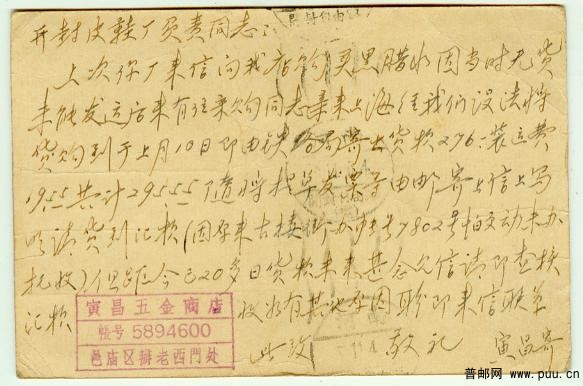 开封皮鞋厂负责同志：
上次你厂来信向我店购买黑腊水因当时无货
未能发运后来有往来购同志来上海经我们设法将
货购到于上月10日即由铁 寄出货款276-装运费
19.55共计295.55 了随将提单发票等由邮寄上信上写
明请货到汇款(因 来古楼街办 号7802号怕变动未办
托收)但距今已20多日货款未来甚念见信请即查核
汇款 收 有其他原因盼即来信联系
此致 敬礼 寅昌寄
寅昌五金商店
帳号 5894600
邑庙区 老西門处
普邮网 www.puu.cn